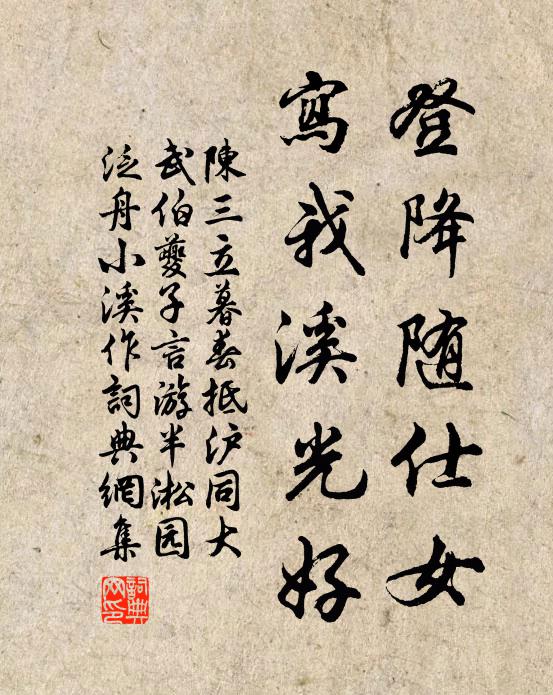 登降随仕女
寫我溪光好
陳三立暮春抵沪同大
武伯夔子言游半淞园
泛舟小溪作詞典網集
詞典
网印